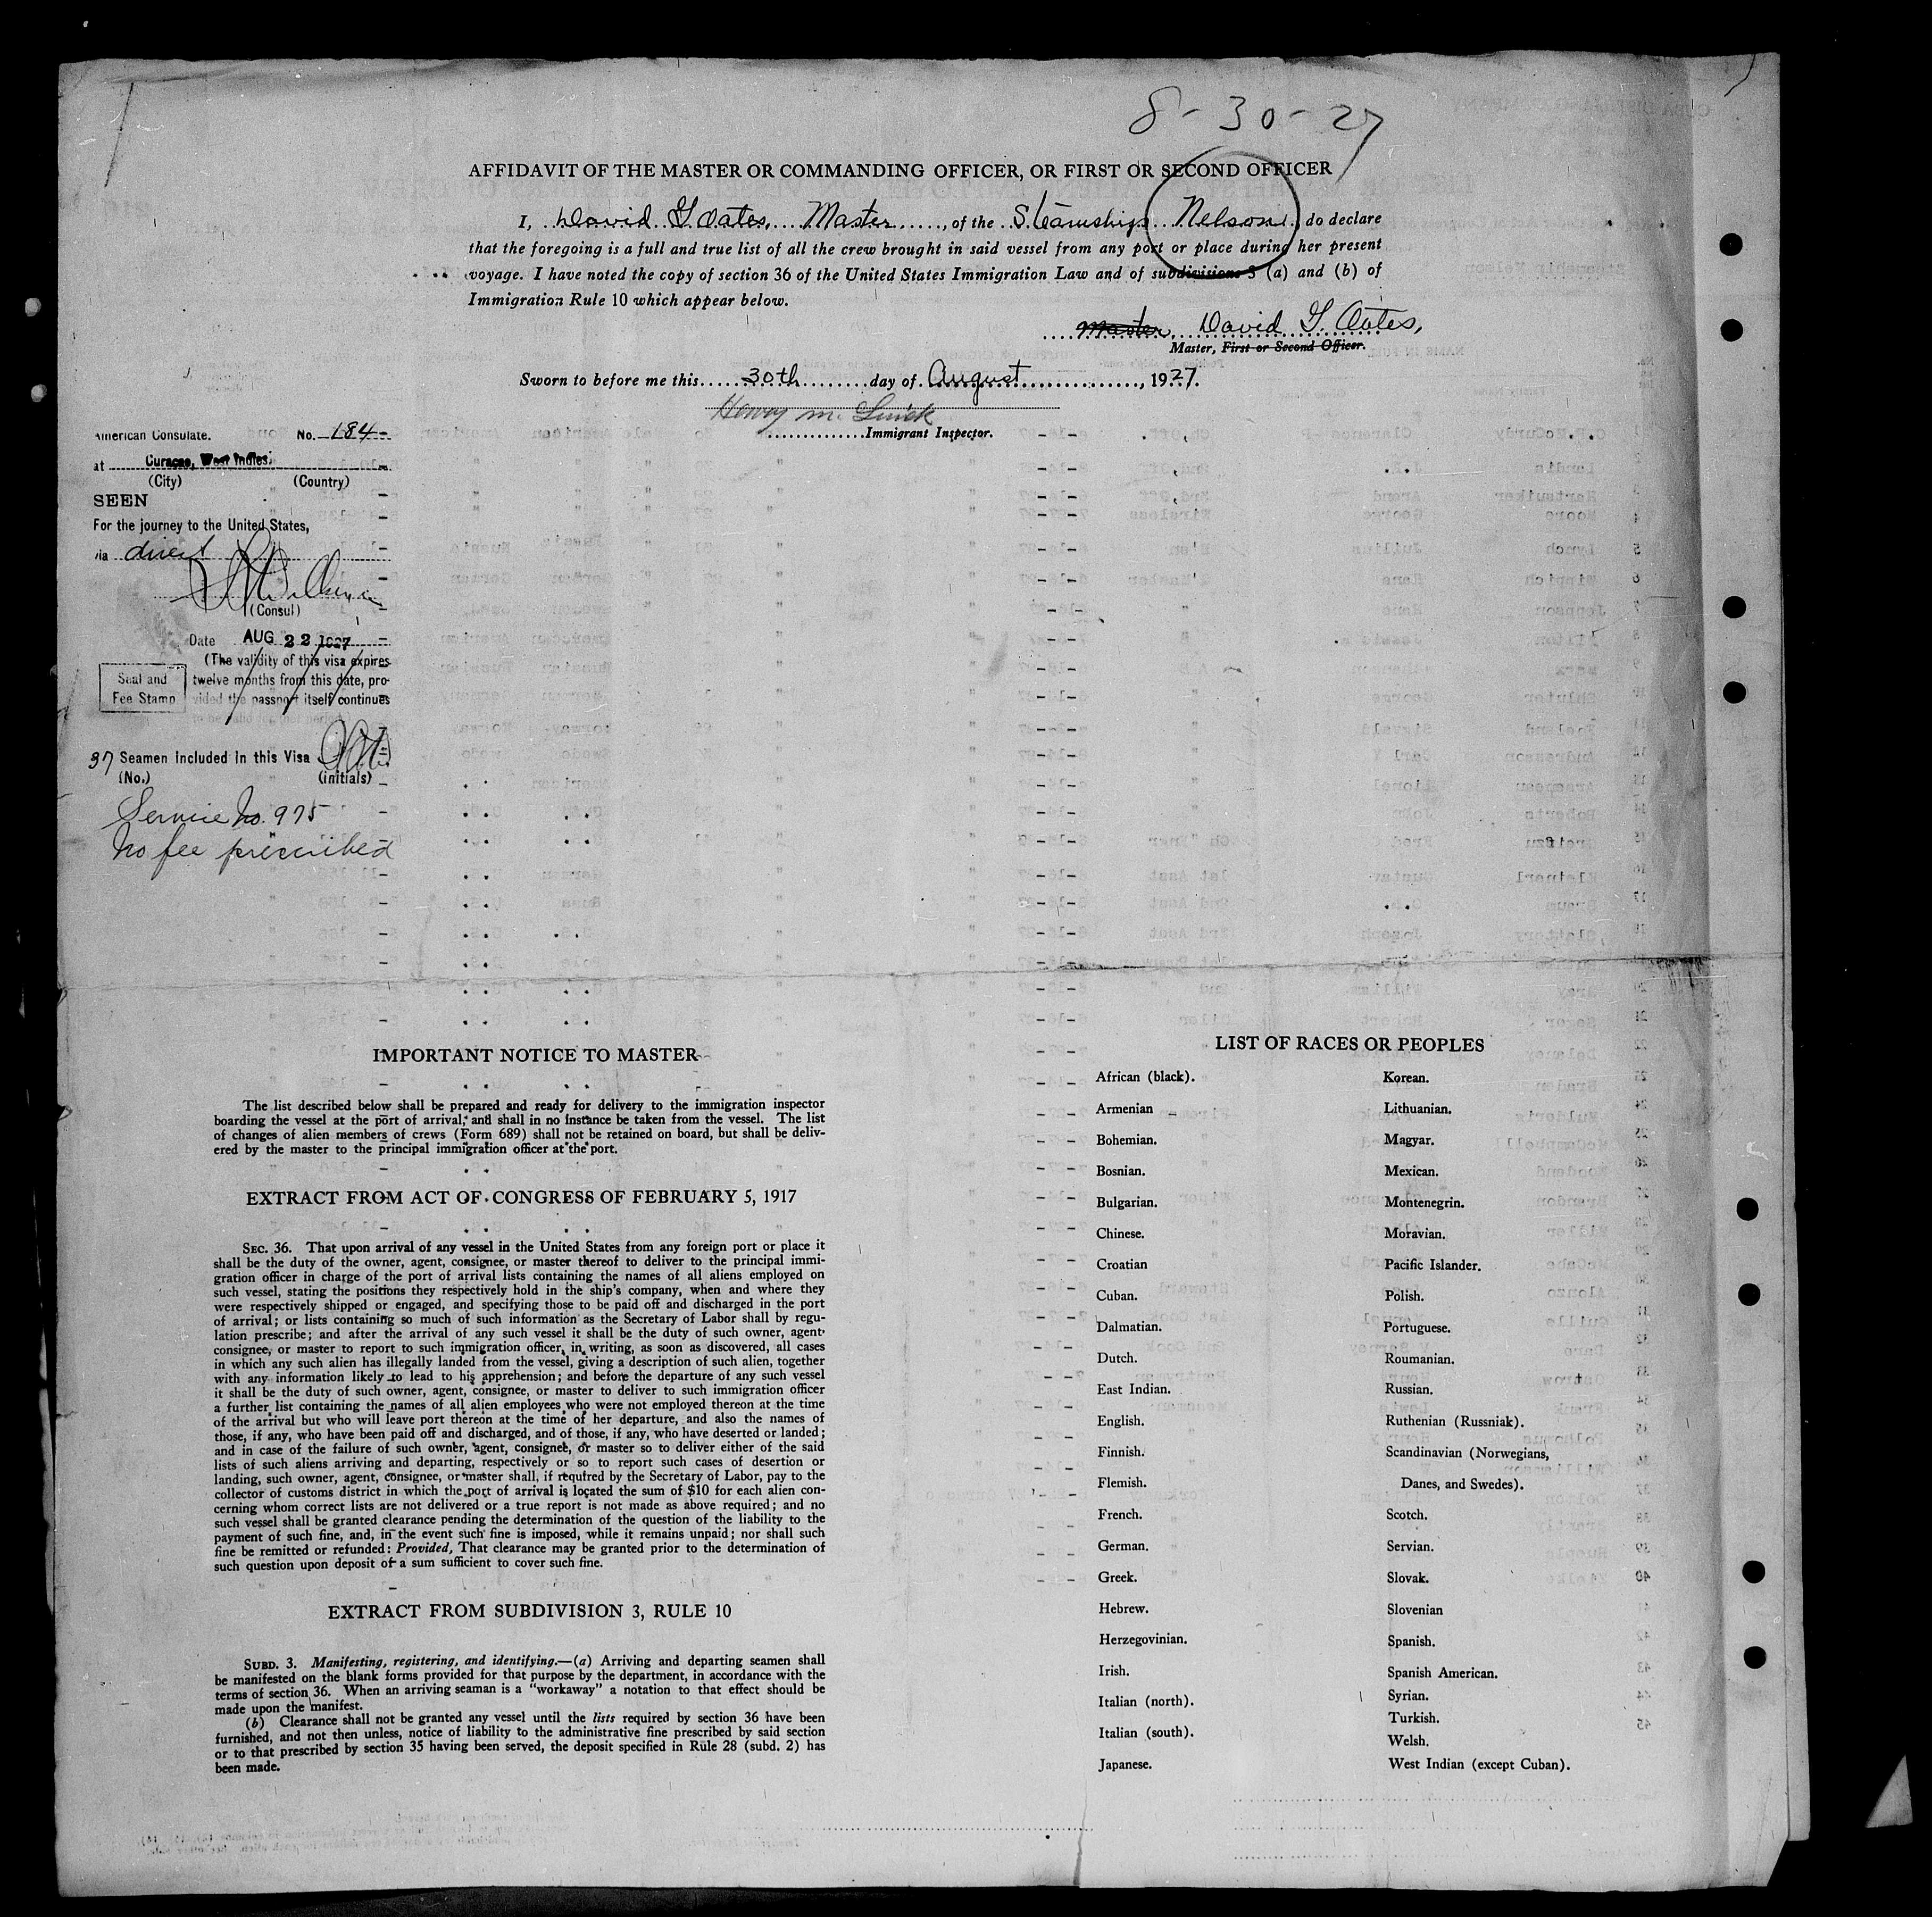 8-30-27
AFFIDAVIT OF THE MASTER OR COMMANDING OFFICER, OR FIRST OR SECOND OFFICER
I, David G. Oates, Master, of the Steamship Nelson, do declare
that the foregoing is a full and true list of all the crew brought in said vessel from any port or place during her present
voyage. I have noted the copy of section 36 of the United States Immigration Law and of subdivisions 3 (a) and (b) of
Immigration Rule 10 which appear below.
Master, David G. Oates,
Master, First or Second Officer.
Sworn to before me this 30th day of August, 1927.
Immigrant Inspector.
American Consulate. No. 184
at Curacao, West Indies.
(City) (Country)
SEEN
For the journey to the United States,
via direct
(Consul)
Date AUG 22 1927
(The validity of this visa expires
twelve months from this date, pro-
vided the passport itself continues
to be valid for that period
Seal and
Fee Stamp
37 Seamen Included in this Visa
(No.) (initials)
Service No. 975
No fee prescribed
IMPORTANT NOTICE TO MASTER
The list described below shall be prepared and ready for delivery to the immigration inspector
boarding the vessel at the port of arrival, and shall in no instance be taken from the vessel. The list
of changes of alien members of crews (Form 689) shall not be retained on board, but shall be deliv-
ered by the master to the principal immigration officer at the port.
EXTRACT FROM ACT OF CONGRESS OF FEBRUARY 5, 1917
SEC. 36. That upon arrival of any vessel in the United States from any foreign port or place it
shall be the duty of the owner, agent, consignee, or master thereof to deliver to the principal immi-
gration officer in charge of the port of arrival lists containing the names of all aliens employed on
such vessel, stating the positions they respectively hold in the ship's company, when and where they
were respectively shipped or engaged, and specifying those to be paid off and discharged in the port
of arrival; or lists containing so much of such information as the Secretary of Labor shall by regu-
lation prescribe; and after the arrival of any such vessel it shall be the duty of such owner, agent
consignee, or master to report to such immigration officer, in writing, as soon as discovered, all cases
in which any such alien has illegally landed from the vessel, giving a description of such alien, together
with any information likely to lead to his apprehension; and before the departure of any such vessel
it shall be the duty of such owner, agent, consignee, or master to deliver to such immigration officer
a further list containing the names of all alien employees who were not employed thereon at the time
of the arrival but who will leave port thereon at the time of her departure, and also the names of
those, if any, who have been paid off and discharged, and of those, if any, who have deserted or landed;
and in case of the failure of such owner, agent, consignee, or master so to deliver either of the said
lists of such aliens arriving and departing, respectively or so to report such cases of desertion or
landing, such owner, agent, consignee, or master shall, if required by the Secretary of Labor, pay to the
collector of customs district in which the port of arrival is located the sum of $10 for each alien con-
cerning whom correct lists are not delivered or a true report is not made as above required; and no
such vessel shall be granted clearance pending the determination of the question of the liability to the
payment of such fine, and, in the event such fine is imposed, while it remains unpaid; nor shall such
fine be remitted or refunded: Provided, That clearance may be granted prior to the determination of
such question upon deposit of a sum sufficient to cover such fine.
EXTRACT FROM SUBDIVISION 3, RULE 10
SUBD. 3. Manifesting, registering, and identifying.—(a) Arriving and departing seamen shall
be manifested on the blank forms provided for that purpose by the department, in accordance with the
terms of section 36. When an arriving seaman is a "workaway" a notation to that effect should be
made upon the manifest.
(b) Clearance shall not be granted any vessel until the lists required by section 36 have been
furnished, and not then unless, notice of liability to the administrative fine prescribed by said section
or to that prescribed by section 35 having been served, the deposit specified in Rule 28 (subd. 2) has
been made.
LIST OF RACES OR PEOPLES
African (black).
Armenian
Bohemian.
Bosnian.
Bulgarian.
Chinese.
Croatian
Cuban.
Dalmatian.
Dutch.
East Indian.
English.
Finnish.
Flemish.
French.
German.
Greek.
Hebrew.
Herzegovinian.
Irish.
Italian (north).
Italian (south).
Japanese.
Korean.
Lithuanian.
Magyar.
Mexican.
Montenegrin.
Moravian.
Pacific Islander.
Polish.
Portuguese.
Roumanian.
Russian.
Ruthenian (Russniak).
Scandinavian (Norwegians,
Danes, and Swedes).
Scotch.
Servian.
Slovak.
Slovenian
Spanish.
Spanish American.
Syrian.
Turkish.
Welsh.
West Indian (except Cuban).